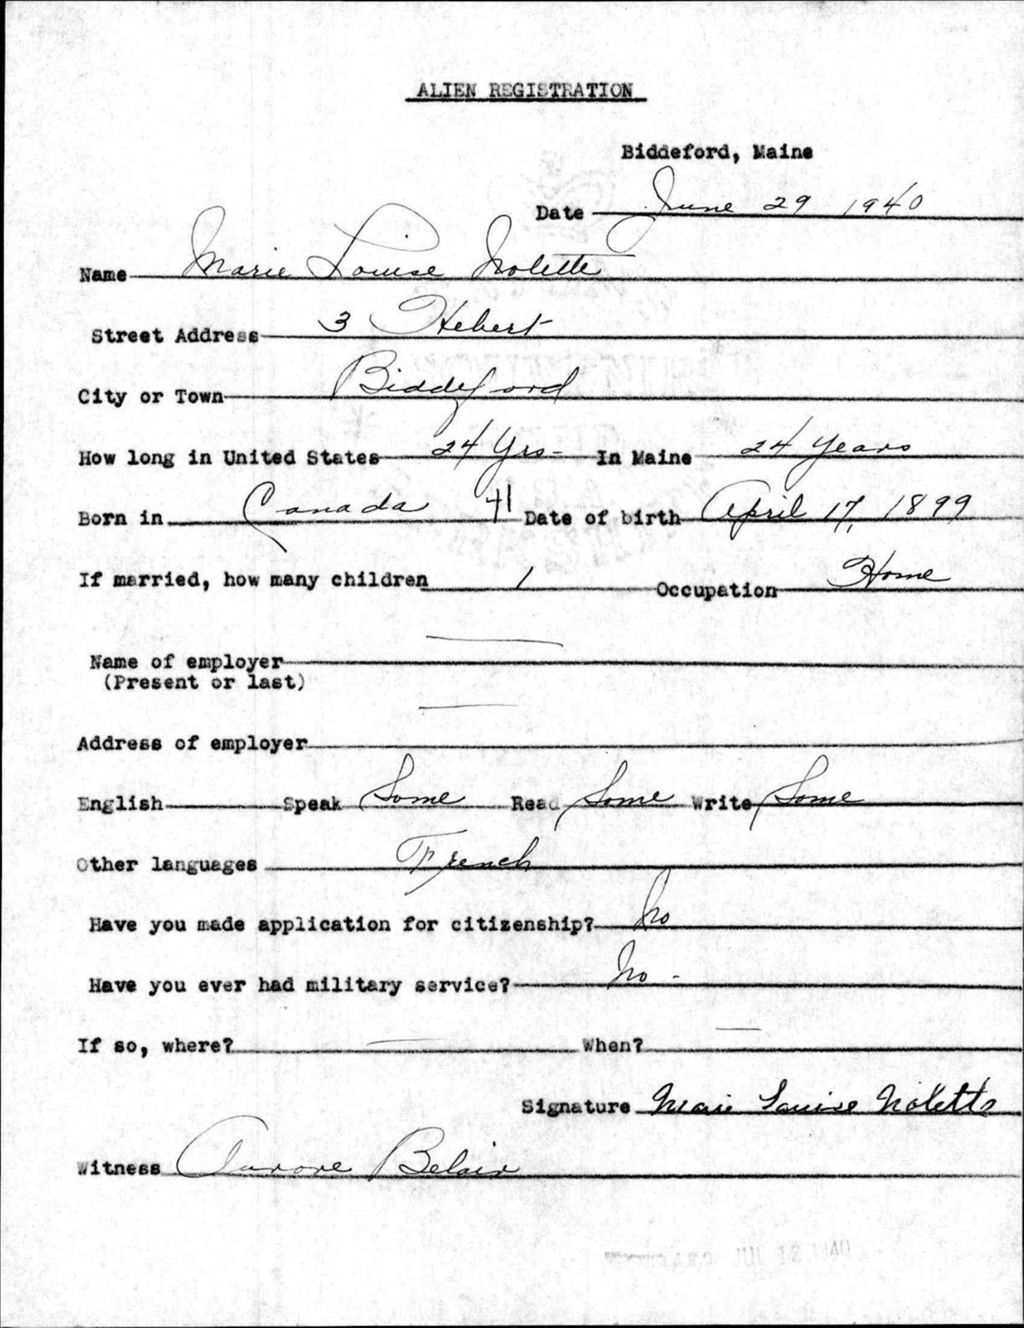 ALIEN REGISTRATION
Biddeford, Maine
Date June 29 1940
Name Marie Louise Nolette
Street Address 3 Hebert
City or Town Biddeford
How long in United States 24 Yrs - In Maine 24 Years
Born in Canada 41 Date of birth April 17, 1899
If married, how many children 1 Occupation Home
Name of employer
(Present or last)
Address of employer
English Speak Some Read Some Write Some
Other languages French
Have you made application for citizenship? No
Have you ever had military service? No -
If so, where? When?
Signature Marie Louise Nolette
Witness Aurore Belair